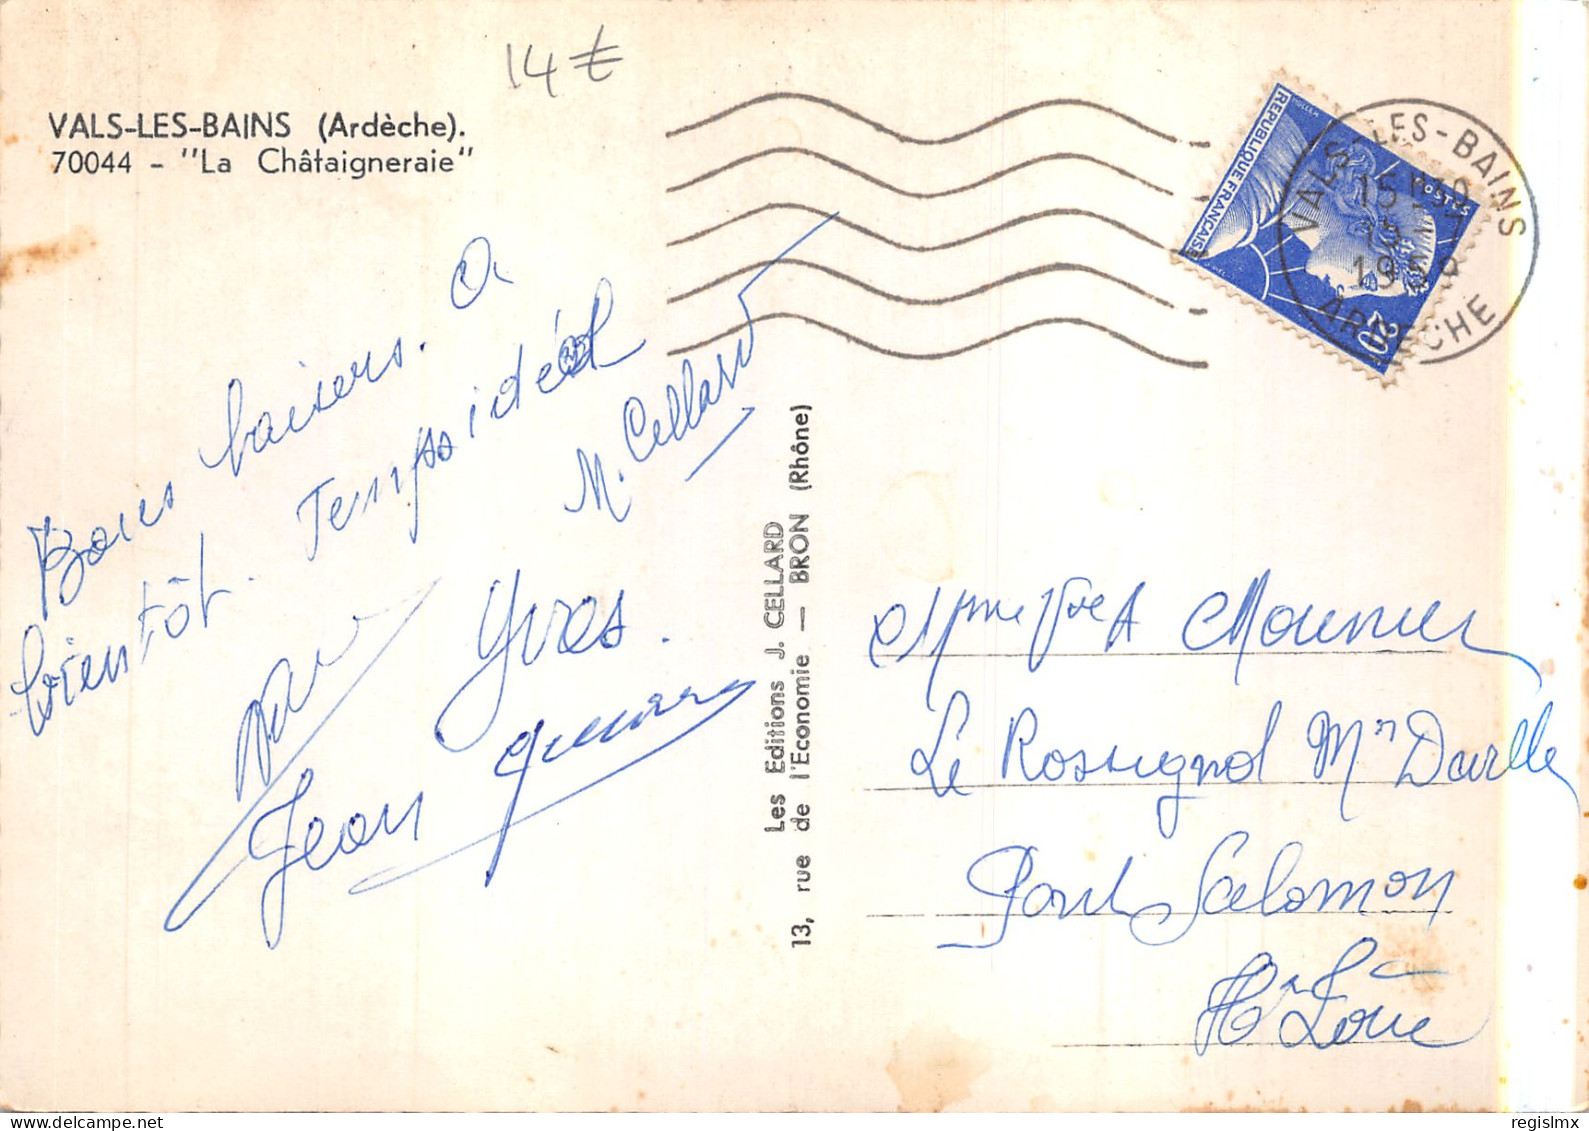 14€
VALS-LES-BAINS (Ardèche).
70044 - "La Châtaigneraie"
Bons baisers. A
bientôt. Temps idéal
M. Cellard
Yves.
Jean
Les Editions J. CELLARD
13, rue de l'Economie — BRON (Rhône)
REPUBLIQUE FRANÇAISE
POSTES
MULLER
20F
VALS-LES-BAINS
15H30
19
ARDECHE
Mme Vve A Mounier
Le Rossignol Mn Darlle
Pont Salomon
Hte Loire
regislmx